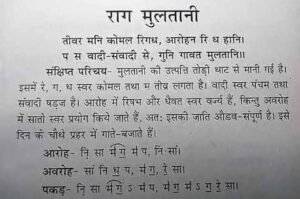 राग मुलतानी
तीवर मनि कोमल रिगध, आरोहन रि ध हानि।
प स वादी-संवादी से, गुनि गावत मुलतानी।।
संक्षिप्त परिचय- मुलतानी की उत्पत्ति तोड़ी थाट से मानी गई है।
इसमें रे, ग, ध स्वर कोमल तथा म तीव्र लगता है। वादी स्वर पंचम तथा
संवादी षड़ज है। आरोह में रिषभ और धैवत स्वर वर्ज्य हैं, किन्तु अवरोह
में सातो स्वर प्रयोग किये जाते हैं, अत: इसकी जाति औडव-संपूर्ण है। इसे
दिन के चौथे प्रहर में गाते-बजाते हैं।
आरोह- नि़ सा म॑ ग॒ म॑ प, नि सां।
अवरोह- सां नि ध॒ प, म॑ ग॒, रे॒ सा।
पकड़- नि़ सा म॑ ग॒ ऽ म॑ प, म॑ ग॒ म॑ ऽ ग॒ रे॒ सा।